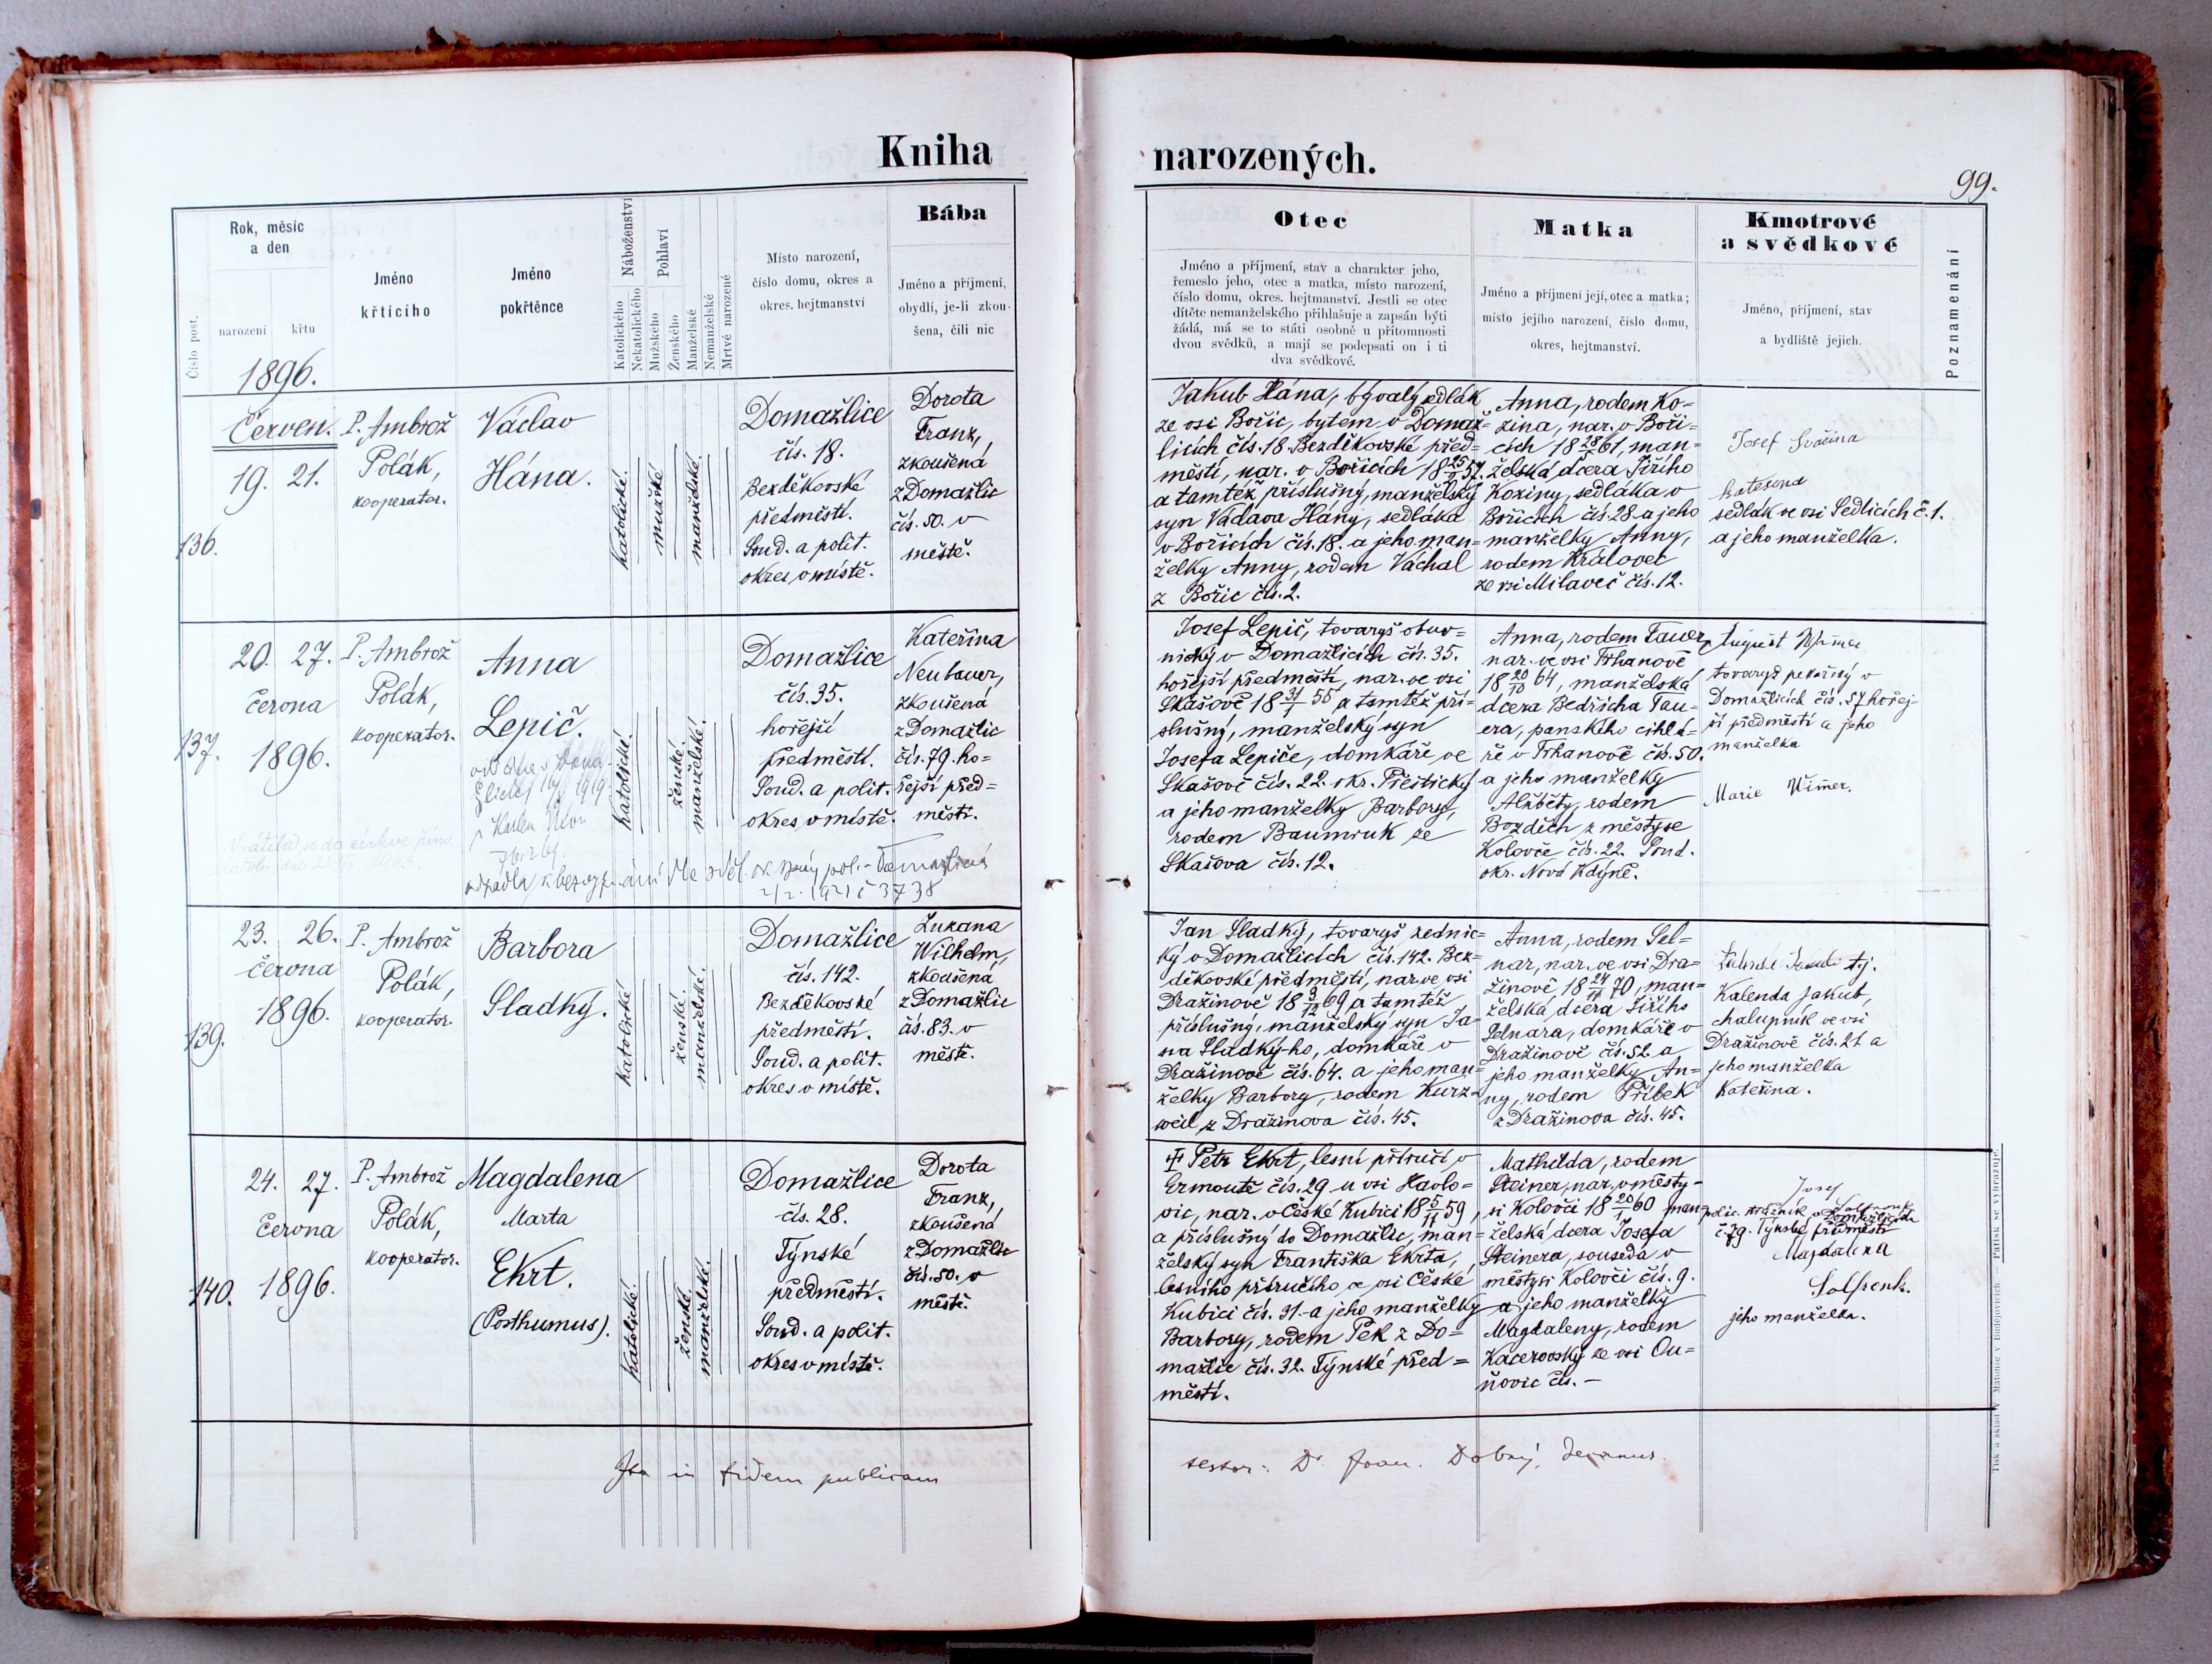 Kniha
narozených.
99.
Rok, měsíc
a den
narození
křtu
Číslo post.
Jméno
křtícího
Jméno
pokřtěnce
Náboženství
Katolického
Nekatolického
Pohlaví
Mužského
Ženského
Manželské
Nemanželské
Mrtvě narozené
Místo narození,
číslo domu, okres a
okres. hejtmanství
Bába
Jméno a příjmení,
obydlí, je-li zkou-
šena, čili nic
Otec
Jméno a příjmení, stav a charakter jeho,
řemeslo jeho, otec a matka, místo narození,
číslo domu, okres. hejtmanství. Jestli se otec
dítěte nemanželského přihlašuje a zapsán býti
žádá, má se to státi osobně u přítomnosti
dvou svědků, a mají se podepsati on i ti
dva svědkové.
Matka
Jméno a příjmení její, otec a matka;
místo jejího narození, číslo domu,
okres, hejtmanství.
Kmotrové
a svědkové
Jméno, příjmení, stav
a bydliště jejich.
Poznamenání
1896.
Červen.
19. 21.
136.
P. Ambrož
Polák,
kooperator.
Václav
Hána.
katolické.
mužské
manželské.
Domažlice
čís. 18.
Bezděkovské
předměstí.
Soud. a polit.
okres v místě.
Dorota
Franz,
zkoušená
z Domažlic
čís. 50. v
městě.
Jakub Hána, bývalý sedlák
ze vsi Bořic, bytem v Domaž-
licích čís. 18. Bezděkovské před-
městí, nar. v Bořicích 18 25/ 57.
a tamtéž příslušný, manželský
syn Václava Hány, sedláka
v Bořicích čís. 18. a jeho man-
želky Anny, rodem Váchal
z Bořic čís. 2.
Anna, rodem Ko-
zina, nar. v Boři-
cích 18 28/5 61, man-
želská dcera Jiřího
Koziny, sedláka v
Bořicích čís. 28. a jeho
manželky Anny,
rodem Královec
ze vsi Milaveč čís. 12.
Josef Svačina
Kateřina
sedlák ve vsi Sedlicích č. 1.
a jeho manželka.
20. 27.
června
1896.
137.
P. Ambrož
Polák,
kooperator.
Anna
Lepič.
1919
Vrátila se do církve řím.
odpadla k bezvyznání dle sděl. ok. správy pol. Domažlice
1921 č 3738
katolické.
ženské.
manželské.
Domažlice
čís. 35.
hořejší
předměstí.
Soud. a polit.
okres v místě.
Kateřina
Neubauer,
zkoušená
z Domažlic
čís. 79. ho-
řejší před-
městí.
Josef Lepič, tovaryš obuv-
nický v Domažlicích čís. 35.
hořejší předměstí, nar. ve vsi
Skašově 18 31/1 55 a tamtéž pří-
slušný, manželský syn
Josefa Lepiče, domkáře ve
Skašově čís. 22. okr. Přeštický
a jeho manželky Barbory,
rodem Baumruk ze
Skašova čís. 12.
Anna, rodem Tauer,
nar. ve vsi Trhanově
18 20/10 64, manželská
dcera Bedřicha Tau-
era, panského cihlá-
ře v Trhanově čís. 50.
a jeho manželky
Alžběty, rodem
Bozděch z městyse
Koloveče čís. 22. Soud.
okr. Nová Kdýně.
August Wimer
tovaryš pekařský v
Domažlicích čís. 57 hořej-
ší předměstí a jeho
manželka
Marie Wimer.
23. 26.
června
1896.
139.
P. Ambrož
Polák,
kooperátor.
Barbora
Sladký.
katolické
ženské.
manželské.
Domažlice
čís. 142.
Bezděkovské
předměstí.
Soud. a polit.
okres v místě.
Zuzana
Wilhelm,
zkoušená
z Domažlic
čís. 83. v
městě.
Jan Sladký, tovaryš zednic-
ký v Domažlicích čís. 142. Bez-
děkovské předměstí, nar. ve vsi
Dražinově 18 9/12 69 a tamtéž
příslušný, manželský syn Ja-
na Sladký-ho, domkáře v
Dražinově čís. 64. a jeho man-
želky Barbory, rodem Kurz-
weil z Dražinova čís. 45.
Anna, rodem Sel-
nar, nar. ve vsi Dra-
žinově 18 24/11 70, man-
želská dcera Jiřího
Selnara, domkáře v
Dražinově čís. 52. a
jeho manželky An-
ny, rodem Příbek
z Dražinova čís. 45.
tj.
Kalenda Jakub,
chalupník ve vsi
Dražinově čís. 21 a
jeho manželka
Kateřina.
24. 27.
června
1896.
140.
P. Ambrož
Polák,
kooperator.
Magdalena
Marta
Ekrt.
(Posthumus).
katolické.
ženské.
manželské.
Domažlice
čís. 28.
Týnské
předměstí.
Soud. a polit.
okres v místě.
Dorota
Franz,
zkoušená
z Domažlic
čís. 50. v
městě.
† Petr Ekrt, lesní příručí v
Ermoutě čís. 29 u vsi Havlo-
vic, nar. v České Kubici 18 5/11 59,
a příslušný do Domažlic, man-
želský syn Františka Ekrta,
lesního příručího ve vsi České
Kubici čís. 31. a jeho manželky
Barbory, rodem Pek z Do-
mažlic čís. 32. Týnské před-
městí.
Mathilda, rodem
Steiner, nar. v městy-
si Kolovči 18 20/1 60 man-
želská dcera Josefa
Steinera, souseda v
městysi Kolovči čís. 9.
a jeho manželky
Magdaleny, rodem
Kacerovský ze vsi Ou-
ňovic čís. -
Josef
polic. strážník v Domažlicích
č. 79. Týnské předměstí
Magdalena
jeho manželka.
Ita in fidem publicam
testor: Dr. Joan. Dobrý, decanus.
Tisk a sklad Matouše v Budějovicích. Patisk se vyhrazuje.